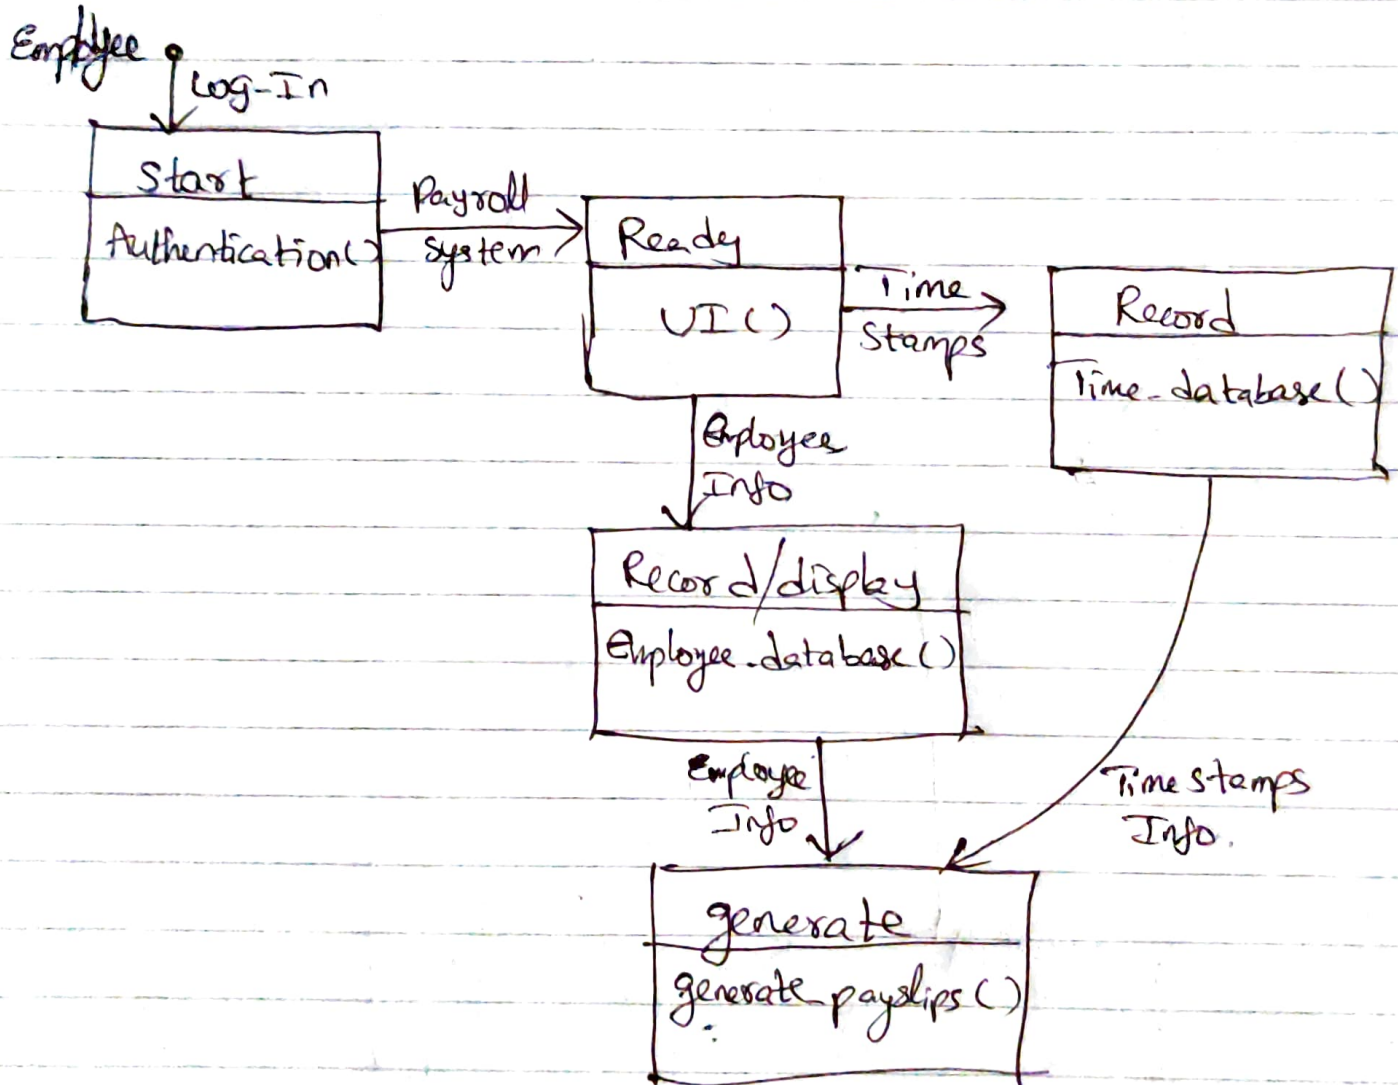 Employee
Log-In
Start
Authentication()
Payroll
System
Ready
UI()
Time
Stamps
Record
Time-database()
Employee
Info
Record/display
Employee-database()
Employee
Info
Time stamps
Info.
generate
generate-payslips()